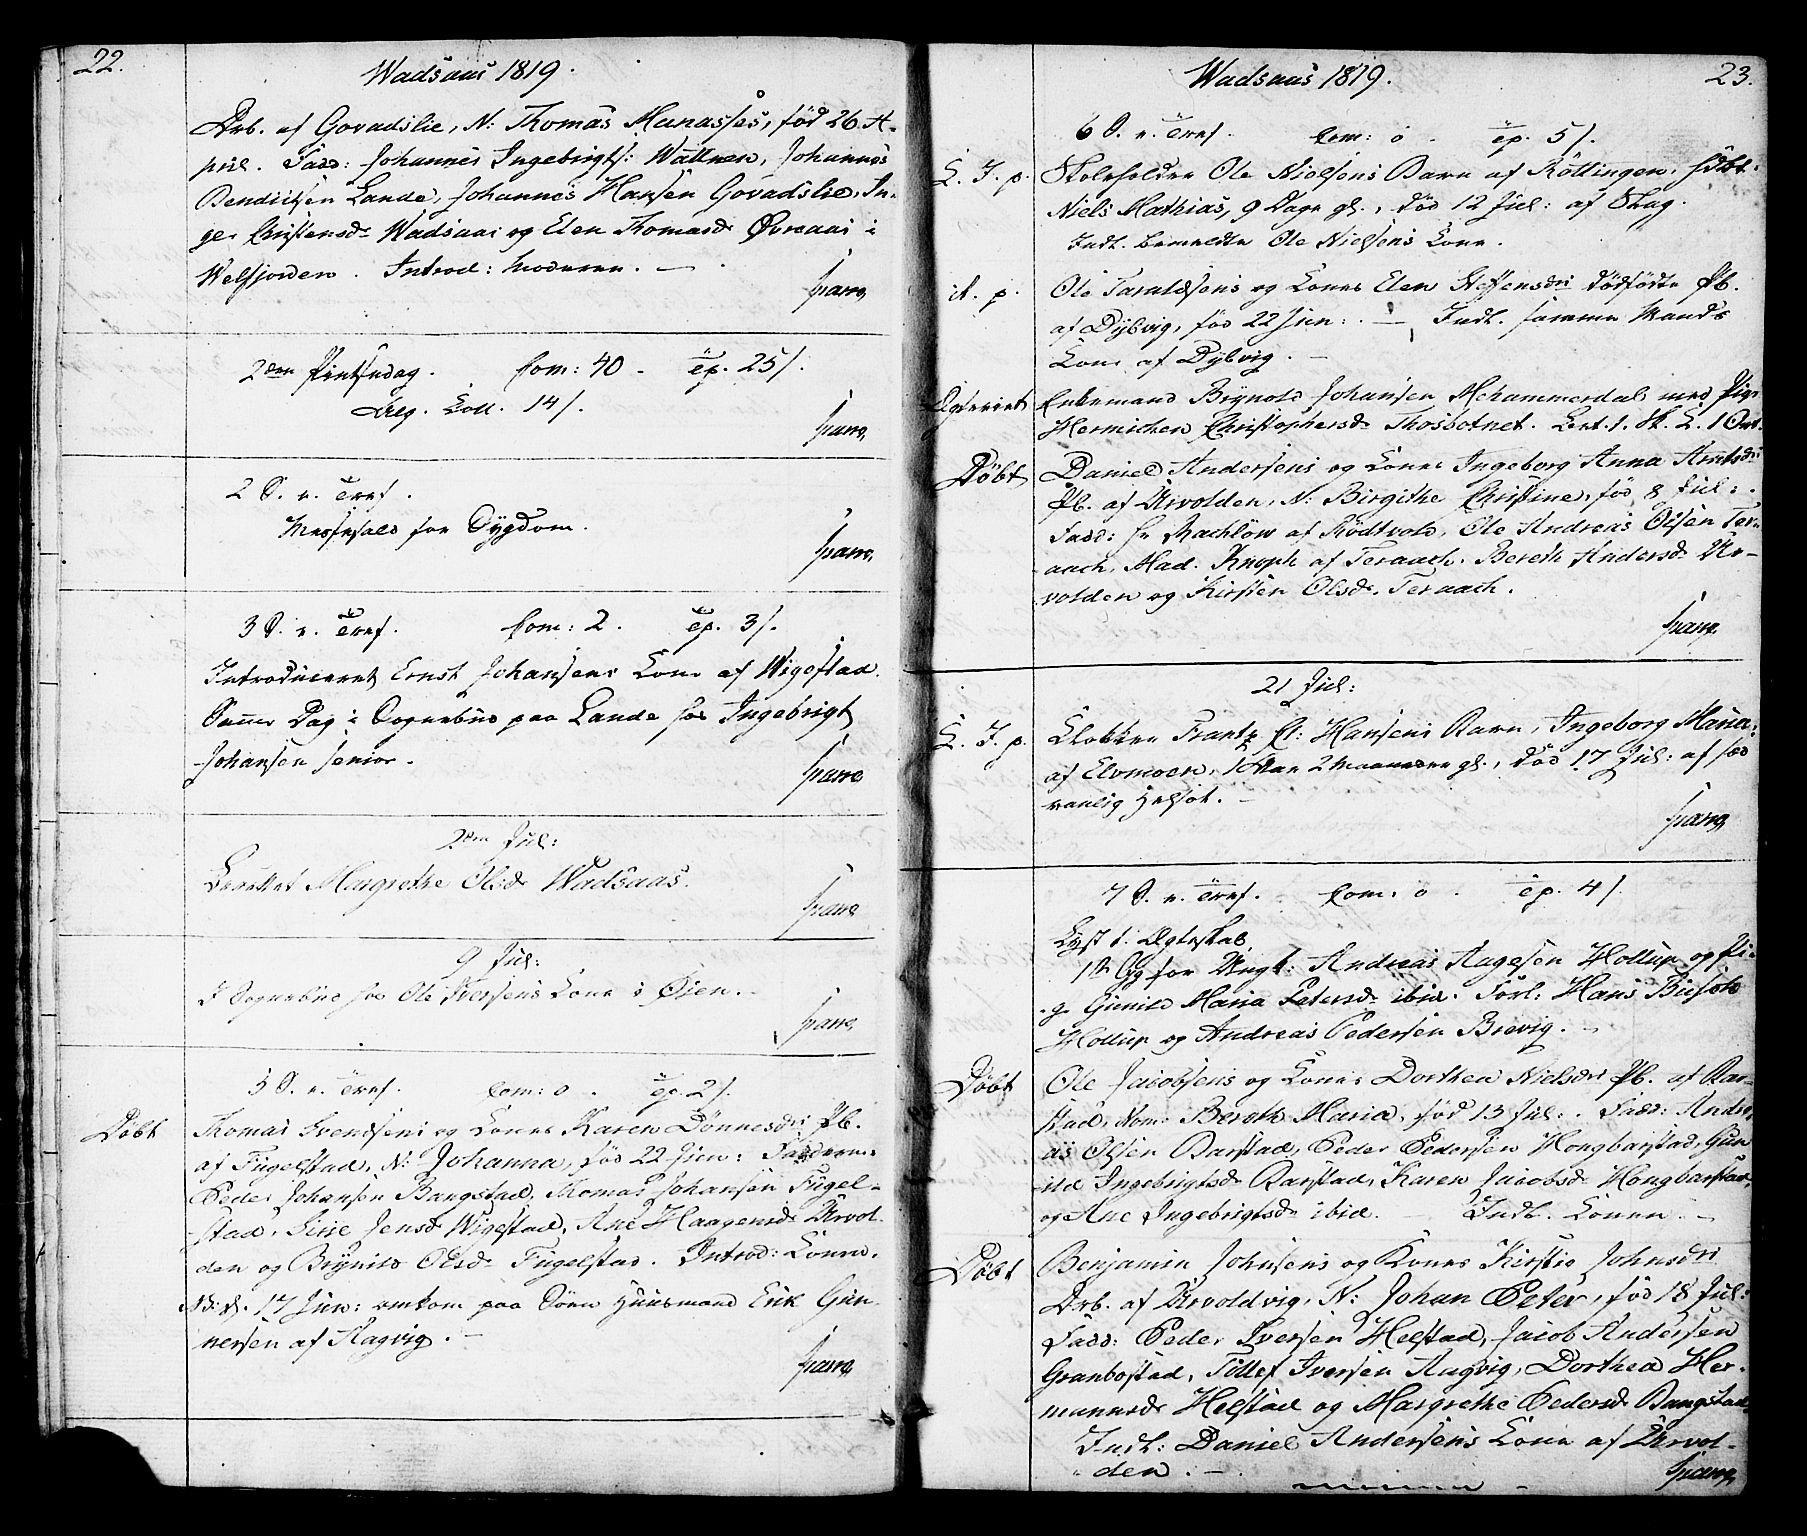 22.
Wadsaas 1819.
Drb. af Govadslie, N: Thomas Manasses, fød 26 A-
pril. Fadd: Johannes Ingebrigts: Wattnen, Johannes
Bendictsen Lande, Johannes Hansen Govadslie, In-
ger Christensd. Wadsaas og Elen Thomasd. Øvreaas i
Welfjorden. Introd: Moderen.
Sparre
2den Pintsedag. Com: 40 - ep. 25/.
Aleg. Coll. 14/.
Sparre
2 S. e. Tref.
Messefald for Sygdom.
Sparre
3 S. e. Tref. Com: 2. ep. 3/.
Introduceret Ernst Johansens Kone af Wigestad.
Samme Dag i Sognebud paa Lande hos Ingebrigt
Johansen senior.
Sparre
2den Jul:
Margrethe Olsd. Wadsaas.
Sparre
9 Jul:
I Sognebud hos Ole Iversens Kone i Øien.
Sparre
5 S. e. Tref. Com: 0. ep. 2/.
Døbt
Thomas Svendsens og Kones Karen Dønnesd: Pb.
af Fugelstad, N: Johanna, fød 22 Jun: Fadderne:
Peder Johansen Bangstad, Thomas Johansen Fugel-
stad, Sirie Jensd. Wigestad, Ane Haagensd. Urvol-
den og Brynild Olsd. Fugelstad. Introd: Konen.
17 Jun: omkom paa Søen Huusmand Erik Gun-
nersen af Aagvig.
Sparre
Wadsaas 1819. 23.
6 S. e. Tref. Com: 0 - ep. 5/.
L. J. p.
Skoleholder Ole Nielsens Barn af Röttingen, hdbt:
Niels Mathias, 9 Dage gl., død 12 Jul: af Slag.
Indl. bemeldte Ole Nielsens Kone.
it. p.
Ole Taraldsens og Kones Elen Steffensdr: dödfödte Pb.
af Dybvig, fød 22 Jun: . - Indl. samme Mands
Kone af Dybvig.
Ægteviet
Enkemand Brynold Johansen Mehammerdal med Pige
Hermichen Christophersd. Thosbotnet.
Døbt
Daniel Andersens og Kones Ingeborg Anna Arntsdr:
Pb. af Urvolden, N: Birgithe Christine, fød 8 Jul: .
Fadd: Hr Machlow af Rödtvold, Ole Andreas Olsen Ter-
aach, Mad. Knoph af Teraach, Bereth Andersd. Ur-
volden og Kirsten Olsd. Teraach.
Sparre
21 Jul:
L. J. p.
Klokker Frantz Cl: Hansens Barn, Ingeborg Maria,
af Elvmoen, 1 Aar 2 Maaneder gl., død 17 Jul: af sæd
vanlig Helsot.
Sparre
7 S. e. Tref. Com: 0 . ep. 4/.
Lyst t. Ægteskab,
1te Gg for Ungk: Andreas Aagesen Hollup og Pi-
ge Gunild Maria Petersd. ibid. Forl: Hans Busch
Hollup og Andreas Pedersen Brevig.
Døbt
Ole Jacobsens og Kones Dorthea Nielsdr: Pb. af Bar-
stad, Nom: Bereth Maria, fød 13 Jul: . Fadd: Andre-
as Olsen Barstad, Peder Pedersen Hongbarstad, Gun
ild Ingebrigtsd. Barstad, Karen Jacobsd. Hongbarstad,
og Ane Ingebrigtsd. ibid. - Indl. Konen.
Døbt
Benjamin Johnsens og Kones Kirstie Johnsdr:
Drb. af Urvoldvig, N: Johan Peter, fød 18 Jul:
Fadd: Peder Iversen Helstad, Jacob Andersen
Granbostad, Tollef Iversen Aagvig, Dorthea Her-
mannsd. Helstad og Margrethe Pedersd. Bangstad.
Indl: Daniel Andersens Kone af Urvol-
den.
Sparre